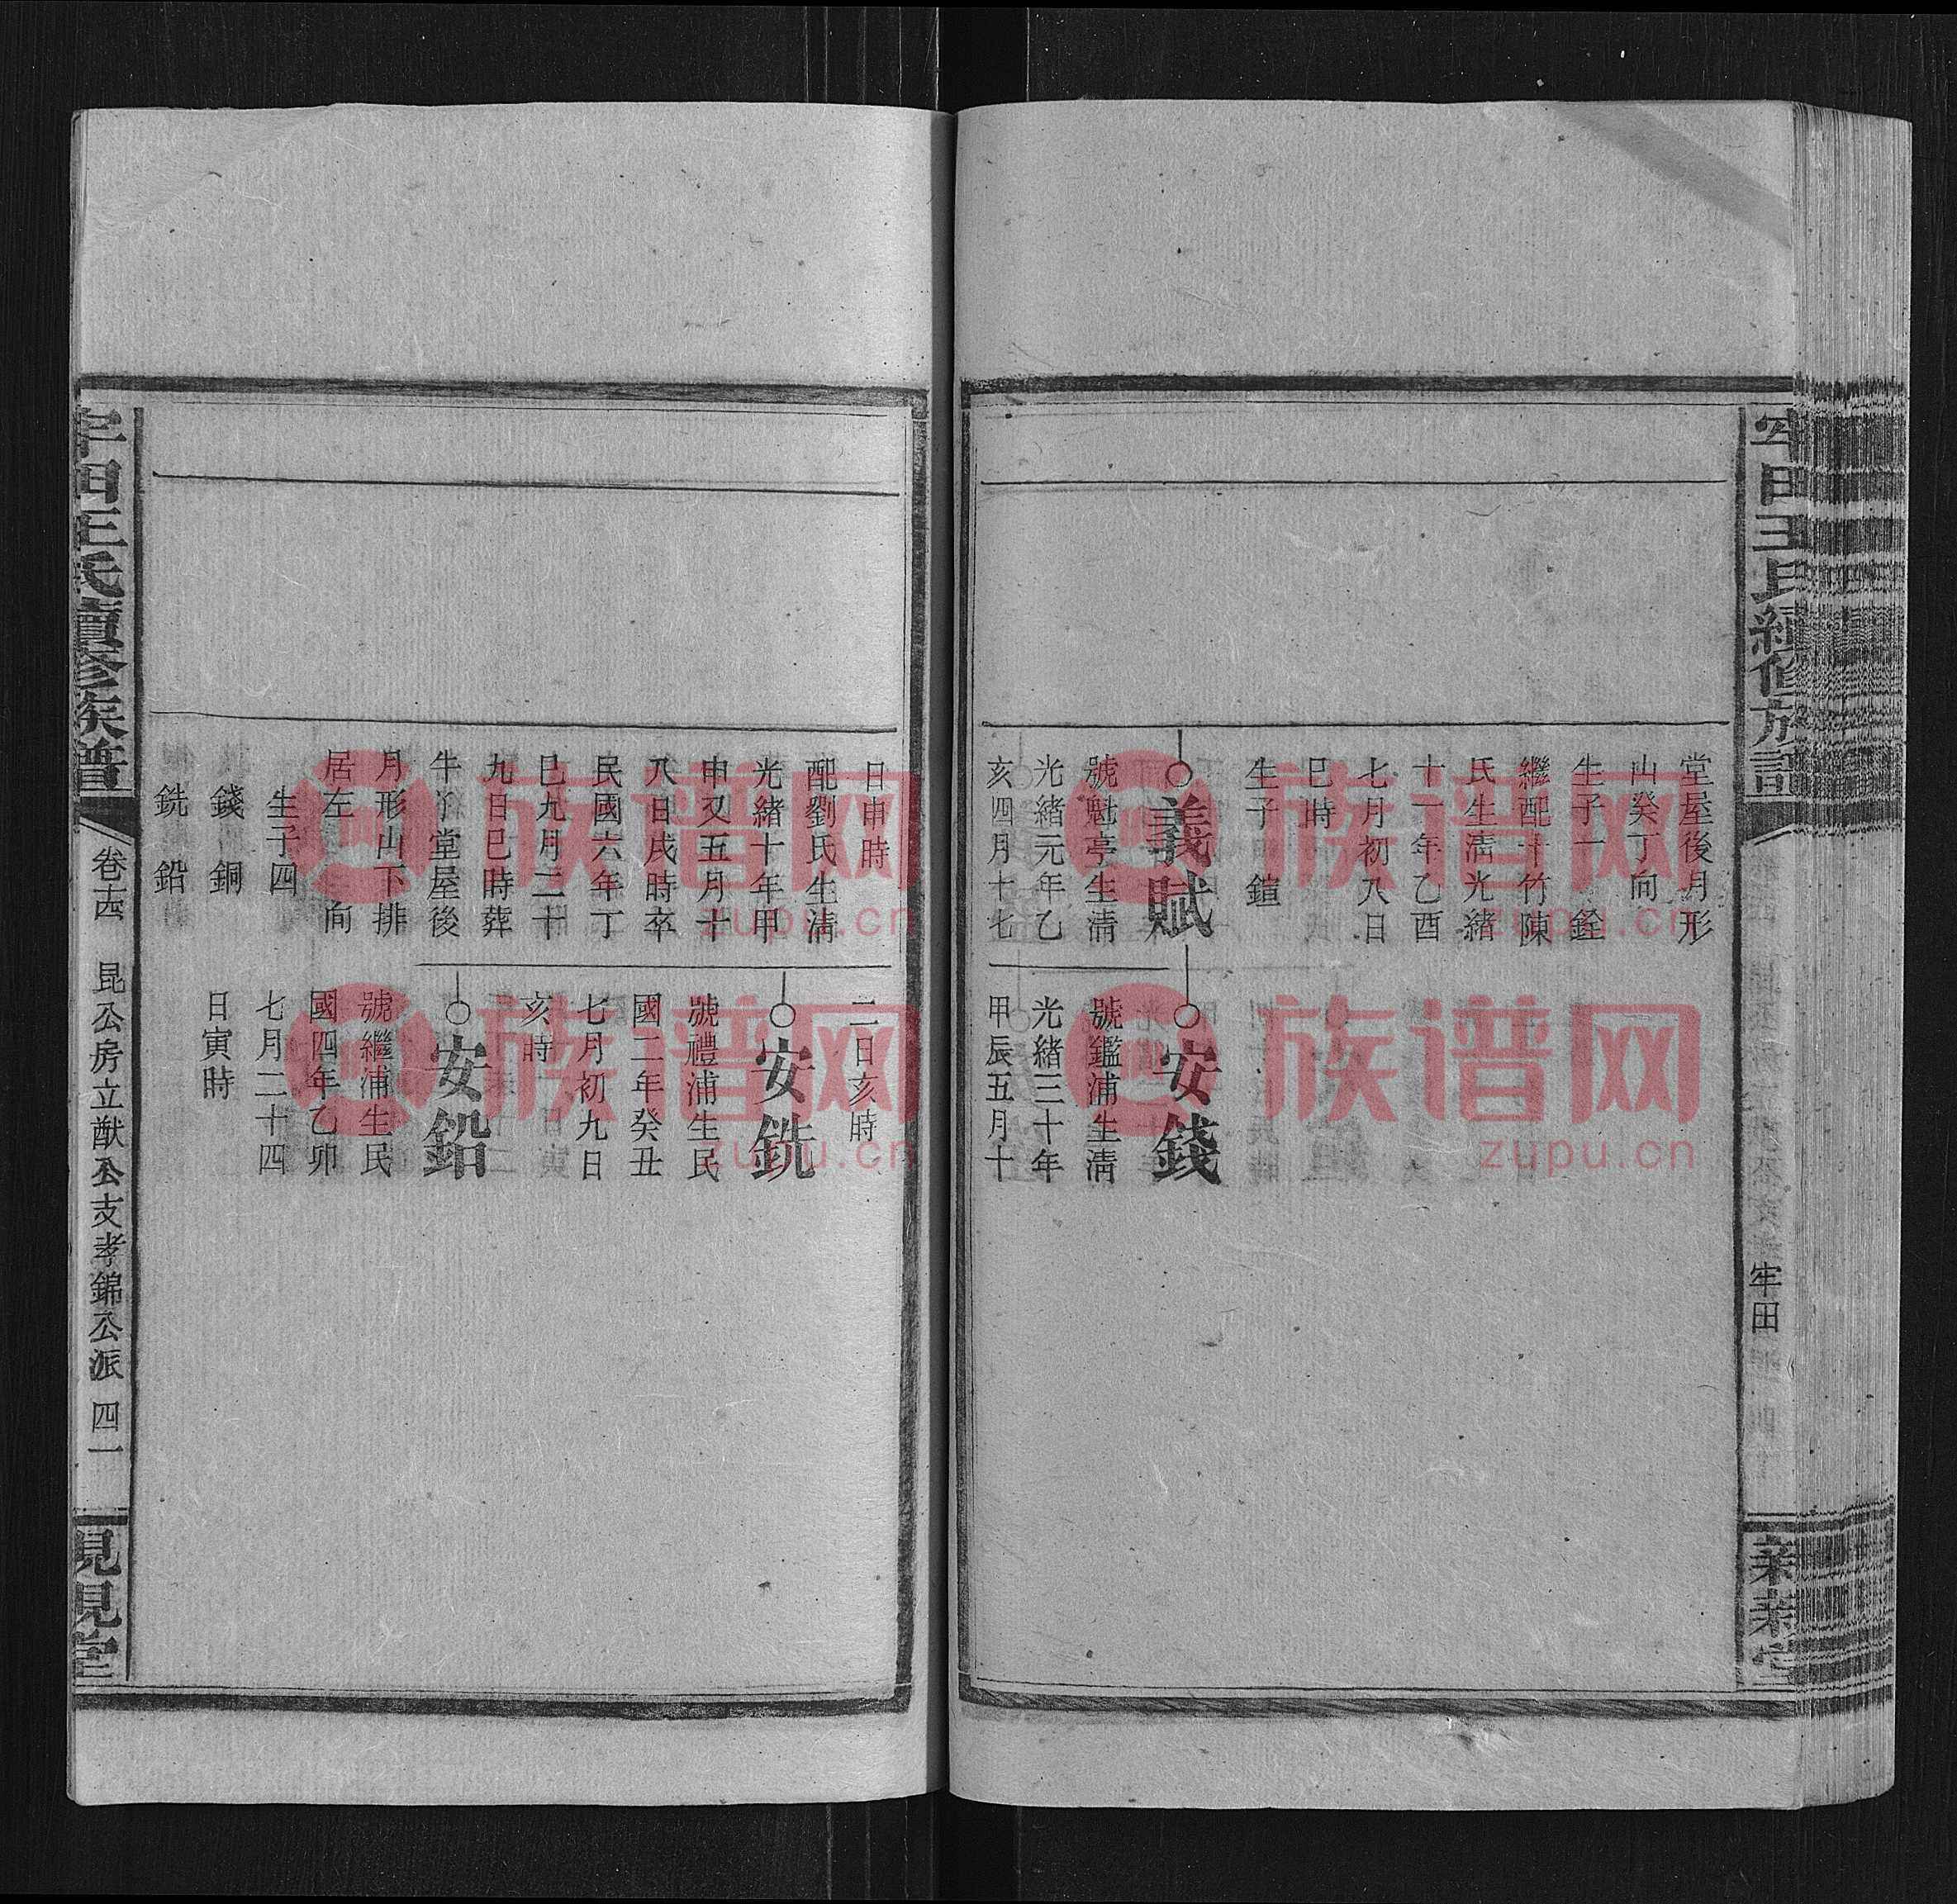 牢田王氏續修族譜
牢田
槼槼堂
堂屋後月形
山癸丁向
生子一　銓
繼配十竹陳
氏生淸光緒
十一年乙酉
七月初八日
巳時
生子　鎧
義賦
號魁亭生淸
光緒元年乙
亥四月十七
安錢
號鑑浦生淸
光緒三十年
甲辰五月十
日申時
配劉氏生淸
光緒十年甲
申又五月十
八日戌時卒
民國六年丁
巳九月二十
九日巳時葬
牛丫堂屋後
月形山下排
居左　向
生子四
錢　銅
銑　鉛
二日亥時
安銑
號禮浦生民
國二年癸丑
七月初九日
亥時
安鉛
號繼浦生民
國四年乙卯
七月二十四
日寅時
牢田王氏續修族譜
卷十四　昆公房立猷公支孝錦公派　四一
槼槼堂
族谱网
zupu.cn
族谱网
zupu.cn
族谱网
zupu.cn
族谱网
zupu.cn